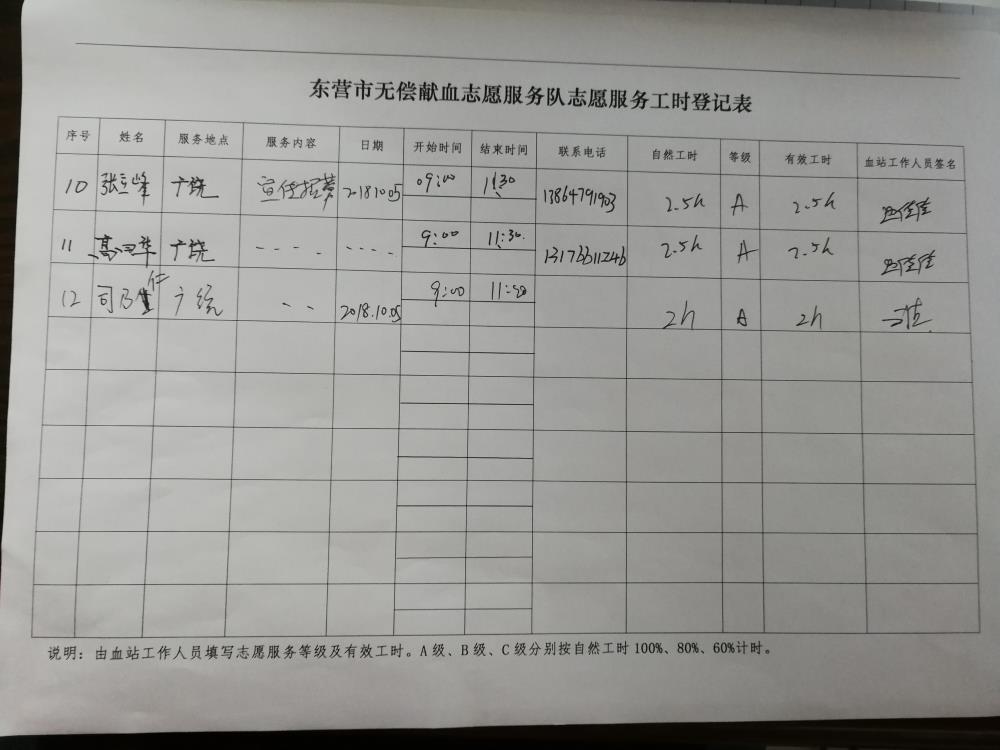 东营市无偿献血志愿服务队志愿服务工时登记表
序号 姓名 服务地点 服务内容 日期 开始时间 结束时间 联系电话 自然工时 等级 有效工时 血站工作人员签名
10 张立峰 广饶 宣传招募 20181005 09:00 11:30 13864791903 2.5h A 2.5h
11 广饶 9:00 11:30. 2.5h A 2.5h
12 司乃仁 广饶 2018.10.05 9:00 11:00 2h A 2h
说明：由血站工作人员填写志愿服务等级及有效工时。A级、B级、C级分别按自然工时100%、80%、60%计时。